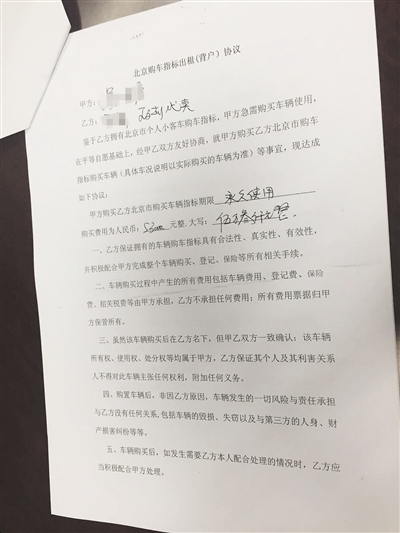 北京购车指标出租(背户)协议
甲方:
乙方:
鉴于乙方拥有北京市个人小客车购车指标,甲方急需购买车辆使用,
在平等自愿基础上,经甲乙双方友好协商,就甲方购买乙方北京市购车
指标购买车辆(具体车况说明以实际购买的车辆为准)等事宜,现达成
如下协议:
甲方购买乙方北京市购买车辆指标期限 永久使用
购买费用为人民币: 53000 元整.大写: 伍万叁仟元整。
一、乙方保证拥有的车辆购车指标具有合法性、真实性、有效性,
并积极配合甲方完成整个车辆购买、登记、保险等所有相关手续。
二、车辆购买过程中产生的所有费用包括车辆费用、登记费、保险
费、相关税费等由甲方承担,乙方不承担任何费用;所有费用票据归甲
方保管所有。
三、虽然该车辆购买后在乙方名下,但甲乙双方一致确认:该车辆
所有权、使用权、处分权等均属于甲方,乙方保证其个人及其利害关系
人不得对此车辆主张任何权利,附加任何义务。
四、购置车辆后,非因乙方原因,车辆发生的一切风险与责任承担
与乙方没有任何关系,包括车辆的毁损、失窃以及与第三方的人身、财
产损害纠纷等等。
五、车辆购买后,如发生需要乙方本人配合处理的情况时,乙方应
当积极配合甲方处理。